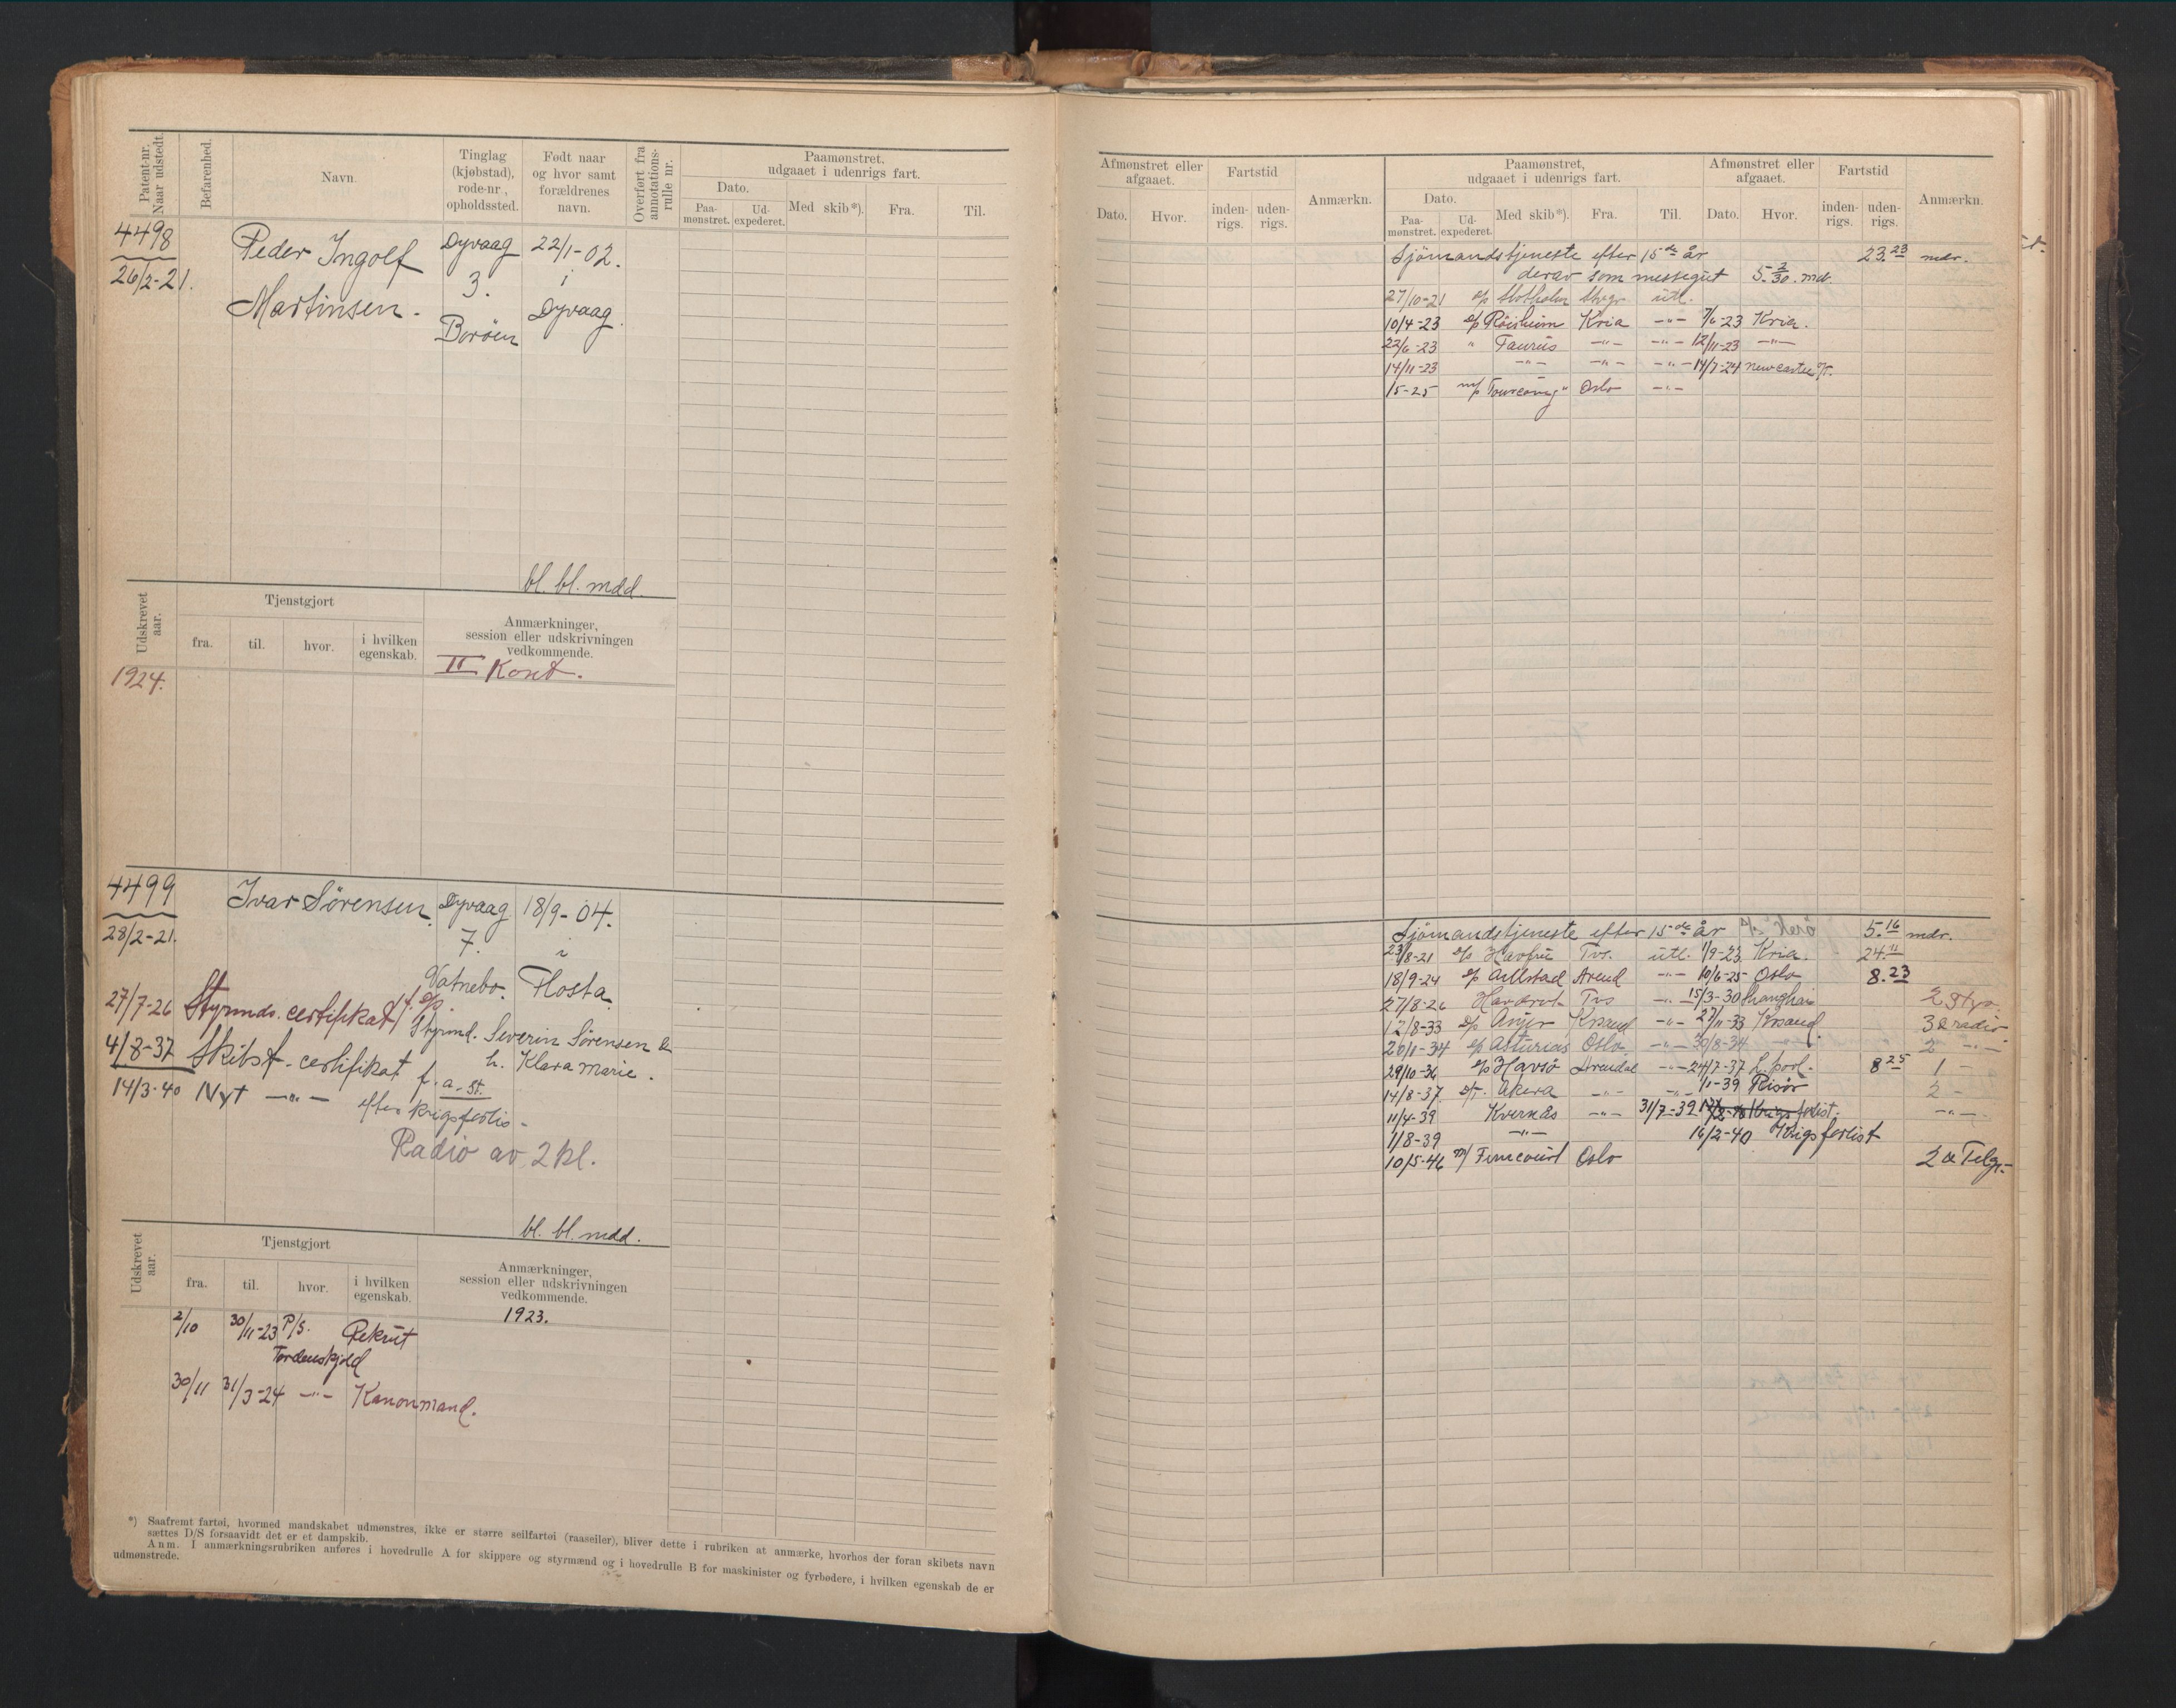 Patent-nr.
Naar udstedt.
Befarenhed.
Navn.
Tinglag
(kjøbstad),
rode-nr.,
opholdssted.
Født naar
og hvor samt
forældrenes
navn.
Overført fra
annotations-
rulle nr.
Paamønstret,
udgaaet i udenrigs fart.
Dato.
Paa-
mønstret.
Ud-
expederet.
Med skib*).
Fra.
Til.
4498
26/2-21.
Peder Ingolf
Martinsen.
Dyvaag
3.
Borøen
22/1-02.
i
Dyvaag.
bl. bl. mdd.
Udskrevet
aar.
Tjenstgjort
fra.
til.
hvor.
i hvilken
egenskab.
Anmærkninger,
session eller udskrivningen
vedkommende.
1924.
II Kont.
4499
28/2-21.
Ivar Sørensen.
Dyvaag
7.
Vatnebo.
18/9-04.
i
Flosta
27/7-26 Styrmds. certifikat f.
Styrmd. Severin Sørensen &
h. Klara Marie.
4/8-37 Skibsf. certifikat f. a. St.
14/3-40 Nyt -"- efter krigsforlis-
Radio av 2 kl.
bl. bl. mdd.
Udskrevet
aar.
Tjenstgjort
fra.
til.
hvor.
i hvilken
egenskab.
Anmærkninger,
session eller udskrivningen
vedkommende.
1923.
2/10 30/11-23 P/S. Rekrut
Tordenskjold
30/11 31/3-24 -"- Kanonmand.
*) Saafremt fartøi, hvormed mandskabet udmønstres, ikke er større seilfartøi (raaseiler), bliver dette i rubriken at anmærke, hvorhos der foran skibets navn
sættes D/S forsaavidt det er et dampskib.
Anm. I anmærkningsrubriken anføres i hovedrulle A for skippere og styrmænd og i hovedrulle B for maskinister og fyrbødere, i hvilken egenskab de er
udmønstrede.
Afmønstret eller
afgaaet.
Dato.
Hvor.
Fartstid
inden-
rigs.
uden-
rigs.
Anmærkn.
Paamønstret,
udgaaet i udenrigs fart.
Dato.
Paa-
mønstret.
Ud-
expederet.
Med skib*).
Fra.
Til.
Afmønstret eller
afgaaet.
Dato.
Hvor.
Fartstid
inden-
rigs.
uden-
rigs.
Anmærkn.
Sjømandstjeneste efter 15de år 23.23 mdr.
derav som messegut 5 2/30. mdr.
27/10-21 s/s utl.
10/4-23 s/s Röisheim Kria -"- 7/6-23 Kria.
22/6-23 " Taurus -"- -"- 12/11-23 -"-
14/11-23 -"- -"- -"- 14/7-24 Newcastle
/5-25 m/s Tourcoing" Oslo -"-
Sjømandstjeneste efter 15de år 5.16 mdr.
23/8-21 s/s Havfru Tvs. utl. 1/9-23 Kria. 24.11
18/9-24 s/s Arend -"- 10/6-25 Oslo 8.23
27/8-26 Tvs -"- 15/3-30 Shanghai 2 Styr.
12/8-33 s/s Anjer Krsand -"- 27/11-33 Krsand. 3 & radio
20/1-34 s/s Asturias Oslo -"- 30/8-34 -"- 2 -"-
29/10-36 s/s Havsø Arendal -"- 24/7-37 L.pool- 8 25 1 -
14/8-37. D/T. Akera -"- -"- /1-39 Risør 2 -
11/4-39 Kvernås -"- 31/7-39 Krigsforlist. -"-
1/8-39 -"- 16/2-40 Krigsforlist
10/5-46 m/ Oslo 2 & Telgr.